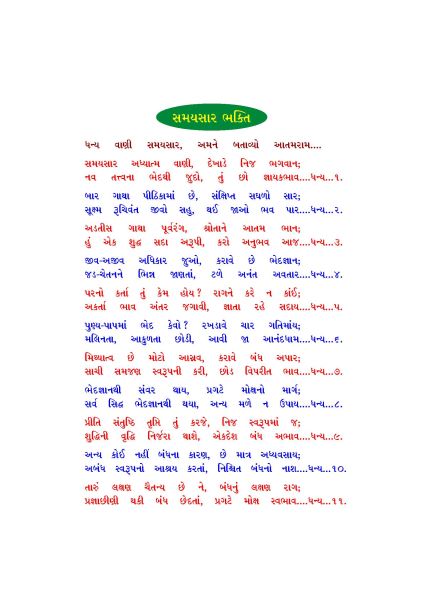 સમયસાર ભક્તિ
ધન્ય વાણી સમયસાર, અમને બતાવ્યો આતમરામ....
સમયસાર અધ્યાત્મ વાણી, દેખાડે નિજ ભગવાન;
નવ તત્ત્વના ભેદથી જુદો, તું છો જ્ઞાયકભાવ....ધન્ય...૧.
બાર ગાથા પીઠિકામાં છે, સંક્ષિપ્ત સઘળો સાર;
સૂક્ષ્મ રૂચિવંત જીવો સહુ, થઈ જાઓ ભવ પાર....ધન્ય...૨.
અડતીસ ગાથા પૂર્વરંગ, શ્રોતાને આતમ ભાન;
હું એક શુદ્ધ સદા અરૂપી, કરો અનુભવ આજ....ધન્ય...૩.
જીવ-અજીવ અધિકાર જુઓ, કરાવે છે ભેદજ્ઞાન;
જડ-ચેતનને ભિન્ન જાણતાં, ટળે અનંત અવતાર....ધન્ય...૪.
પરનો કર્તા તું કેમ હોય? રાગને કરે ન કાંઈ;
અકર્તા ભાવ અંતર જગાવી, જ્ઞાતા રહે સદાય....ધન્ય...૫.
પુણ્ય-પાપમાં ભેદ કેવો? રખડાવે ચાર ગતિમાંય;
મલિનતા, આકુળતા છોડી, આવી જા આનંદધામ....ધન્ય...૬.
મિથ્યાત્વ છે મોટો આસ્રવ, કરાવે બંધ અપાર;
સાચી સમજણ સ્વરૂપની કરી, છોડ વિપરીત ભાવ....ધન્ય...૭.
ભેદજ્ઞાનથી સંવર થાય, પ્રગટે મોક્ષનો માર્ગ;
સર્વ સિદ્ધ ભેદજ્ઞાનથી થયા, અન્ય મળે ન ઉપાય....ધન્ય...૮.
પ્રીતિ સંતુષ્ટિ તૃપ્તિ તું કરજે, નિજ સ્વરૂપમાં જ;
શુદ્ધિની વૃદ્ધિ નિર્જરા થાશે, એકદેશ બંધ અભાવ....ધન્ય...૯.
અન્ય કોઈ નહીં બંધના કારણ, છે માત્ર અધ્યવસાય;
અબંધ સ્વરૂપનો આશ્રય કરતાં, નિશ્ચિત બંધનો નાશ....ધન્ય...૧૦.
તારું લક્ષણ ચૈતન્ય છે ને, બંધનું લક્ષણ રાગ;
પ્રજ્ઞાછીણી થકી બંધ છેદતાં, પ્રગટે મોક્ષ સ્વભાવ....ધન્ય...૧૧.